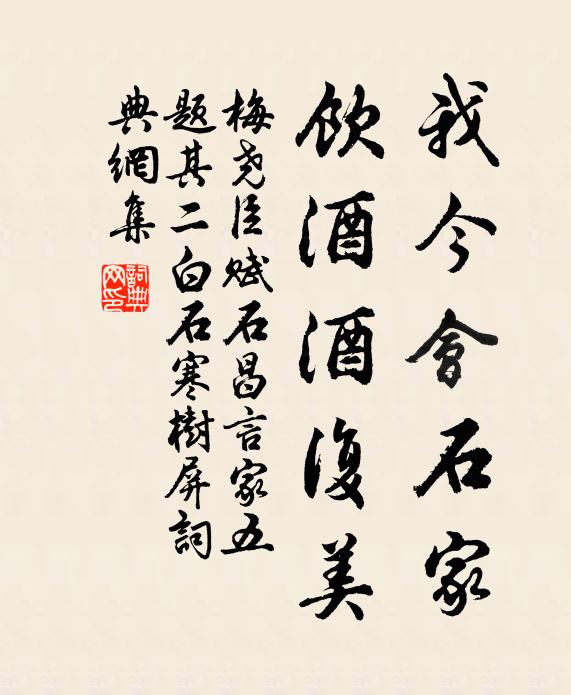 我今會石家
飲酒酒復美
梅堯臣賦石昌言家五
題其二白石寒樹屏詞
典網集
詞典网印